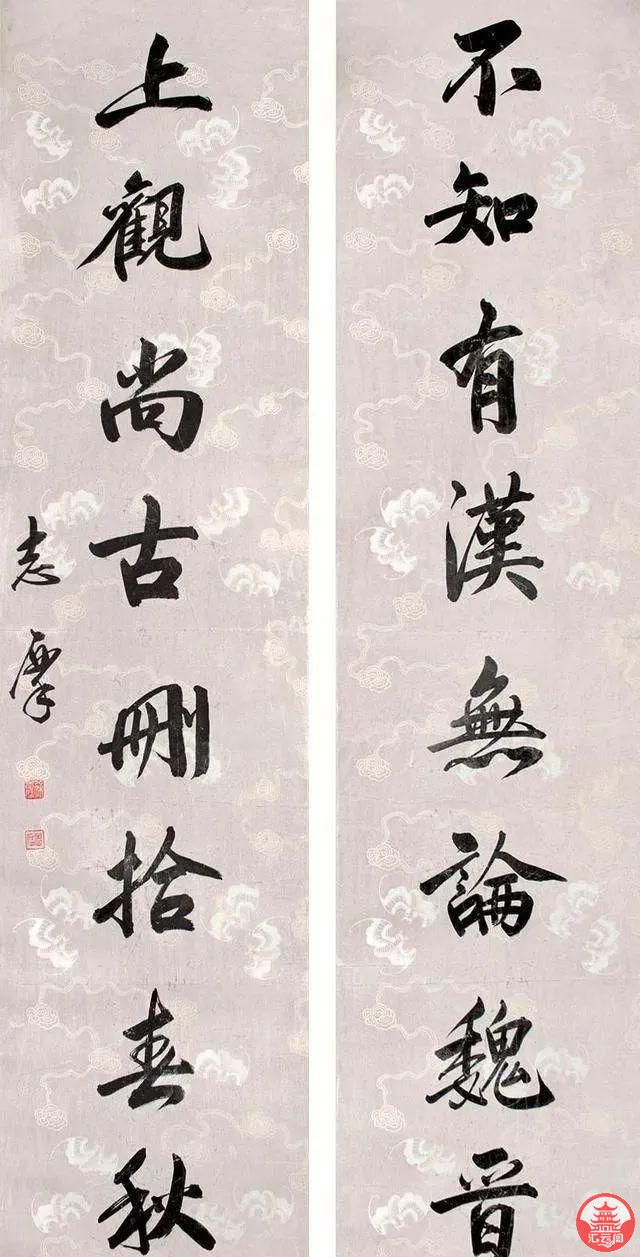 不知有漢無論魏晋
上觀尚古刪拾春秋
志摩
汇云阁